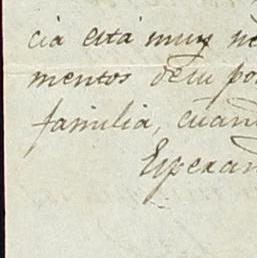 cia está muy ne
mentos de su po
familia, cuan
Esperan